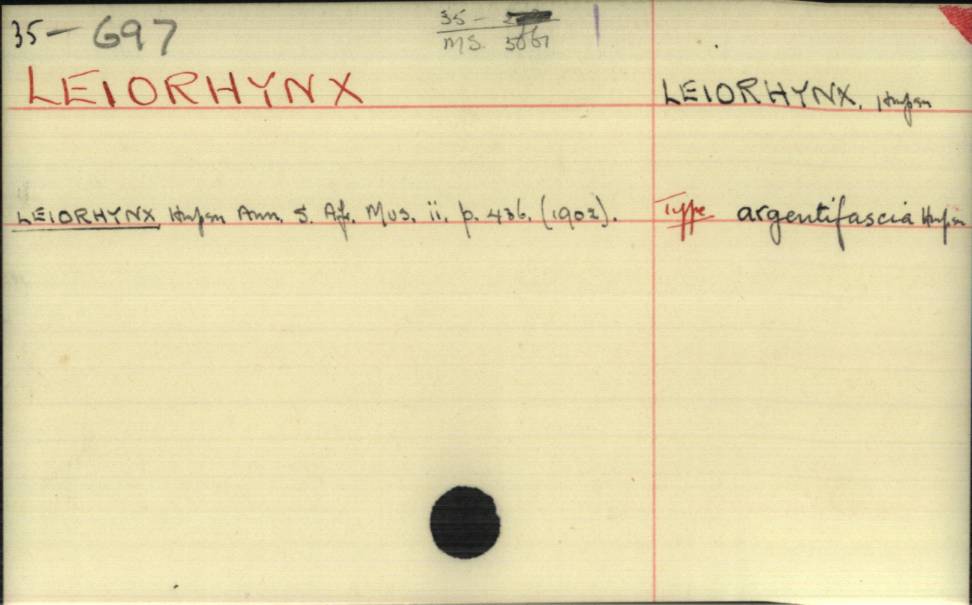 35-697
35-
MS.
LEIORHYNX
LEIORHYNX, Hmpsn
LEIORHYNX Hmpsn Ann. S. Afr. Mus. ii. p. 436. (1902).
Type argentifascia Hmpsn